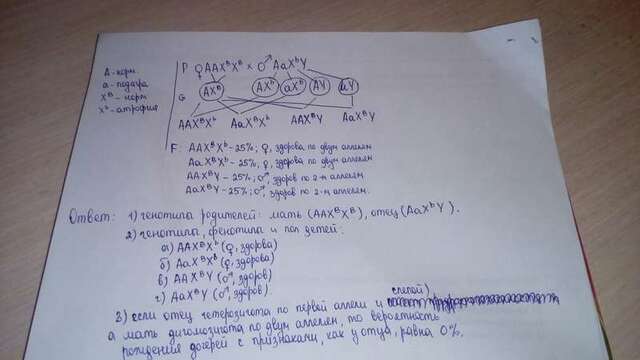 А - норм.
а - подагра
Xᴮ - норм
Xᵇ - атрофия
P ♀ AAXᴮXᴮ × ♂ AaXᵇY
G AXᴮ AXᵇ aXᵇ AY aY
AAXᴮXᵇ AaXᴮXᵇ AAXᴮY AaXᴮY
F: AAXᴮXᵇ - 25%; ♀, здорова по двум аллелям
AaXᴮXᵇ - 25%, ♀, здорова по двум аллелям
AAXᴮY - 25%; ♂, здоров по 2-м аллелям
AaXᴮY - 25%; ♂, здоров по 2-м аллелям.
Ответ: 1) генотипы родителей: мать (AAXᴮXᴮ), отец (AaXᵇY).
2) генотипы, фенотипы и пол детей:
а) AAXᴮXᵇ (♀, здорова)
б) AaXᴮXᵇ (♀, здорова)
в) AAXᴮY (♂, здоров)
г) AaXᴮY (♂, здоров)
слепой)
3) если отец гетерозигота по первой аллели и
а мать дигомозигота по двум аллелям, то вероятность
рождения дочерей с признаками, как у отца, равна 0%.